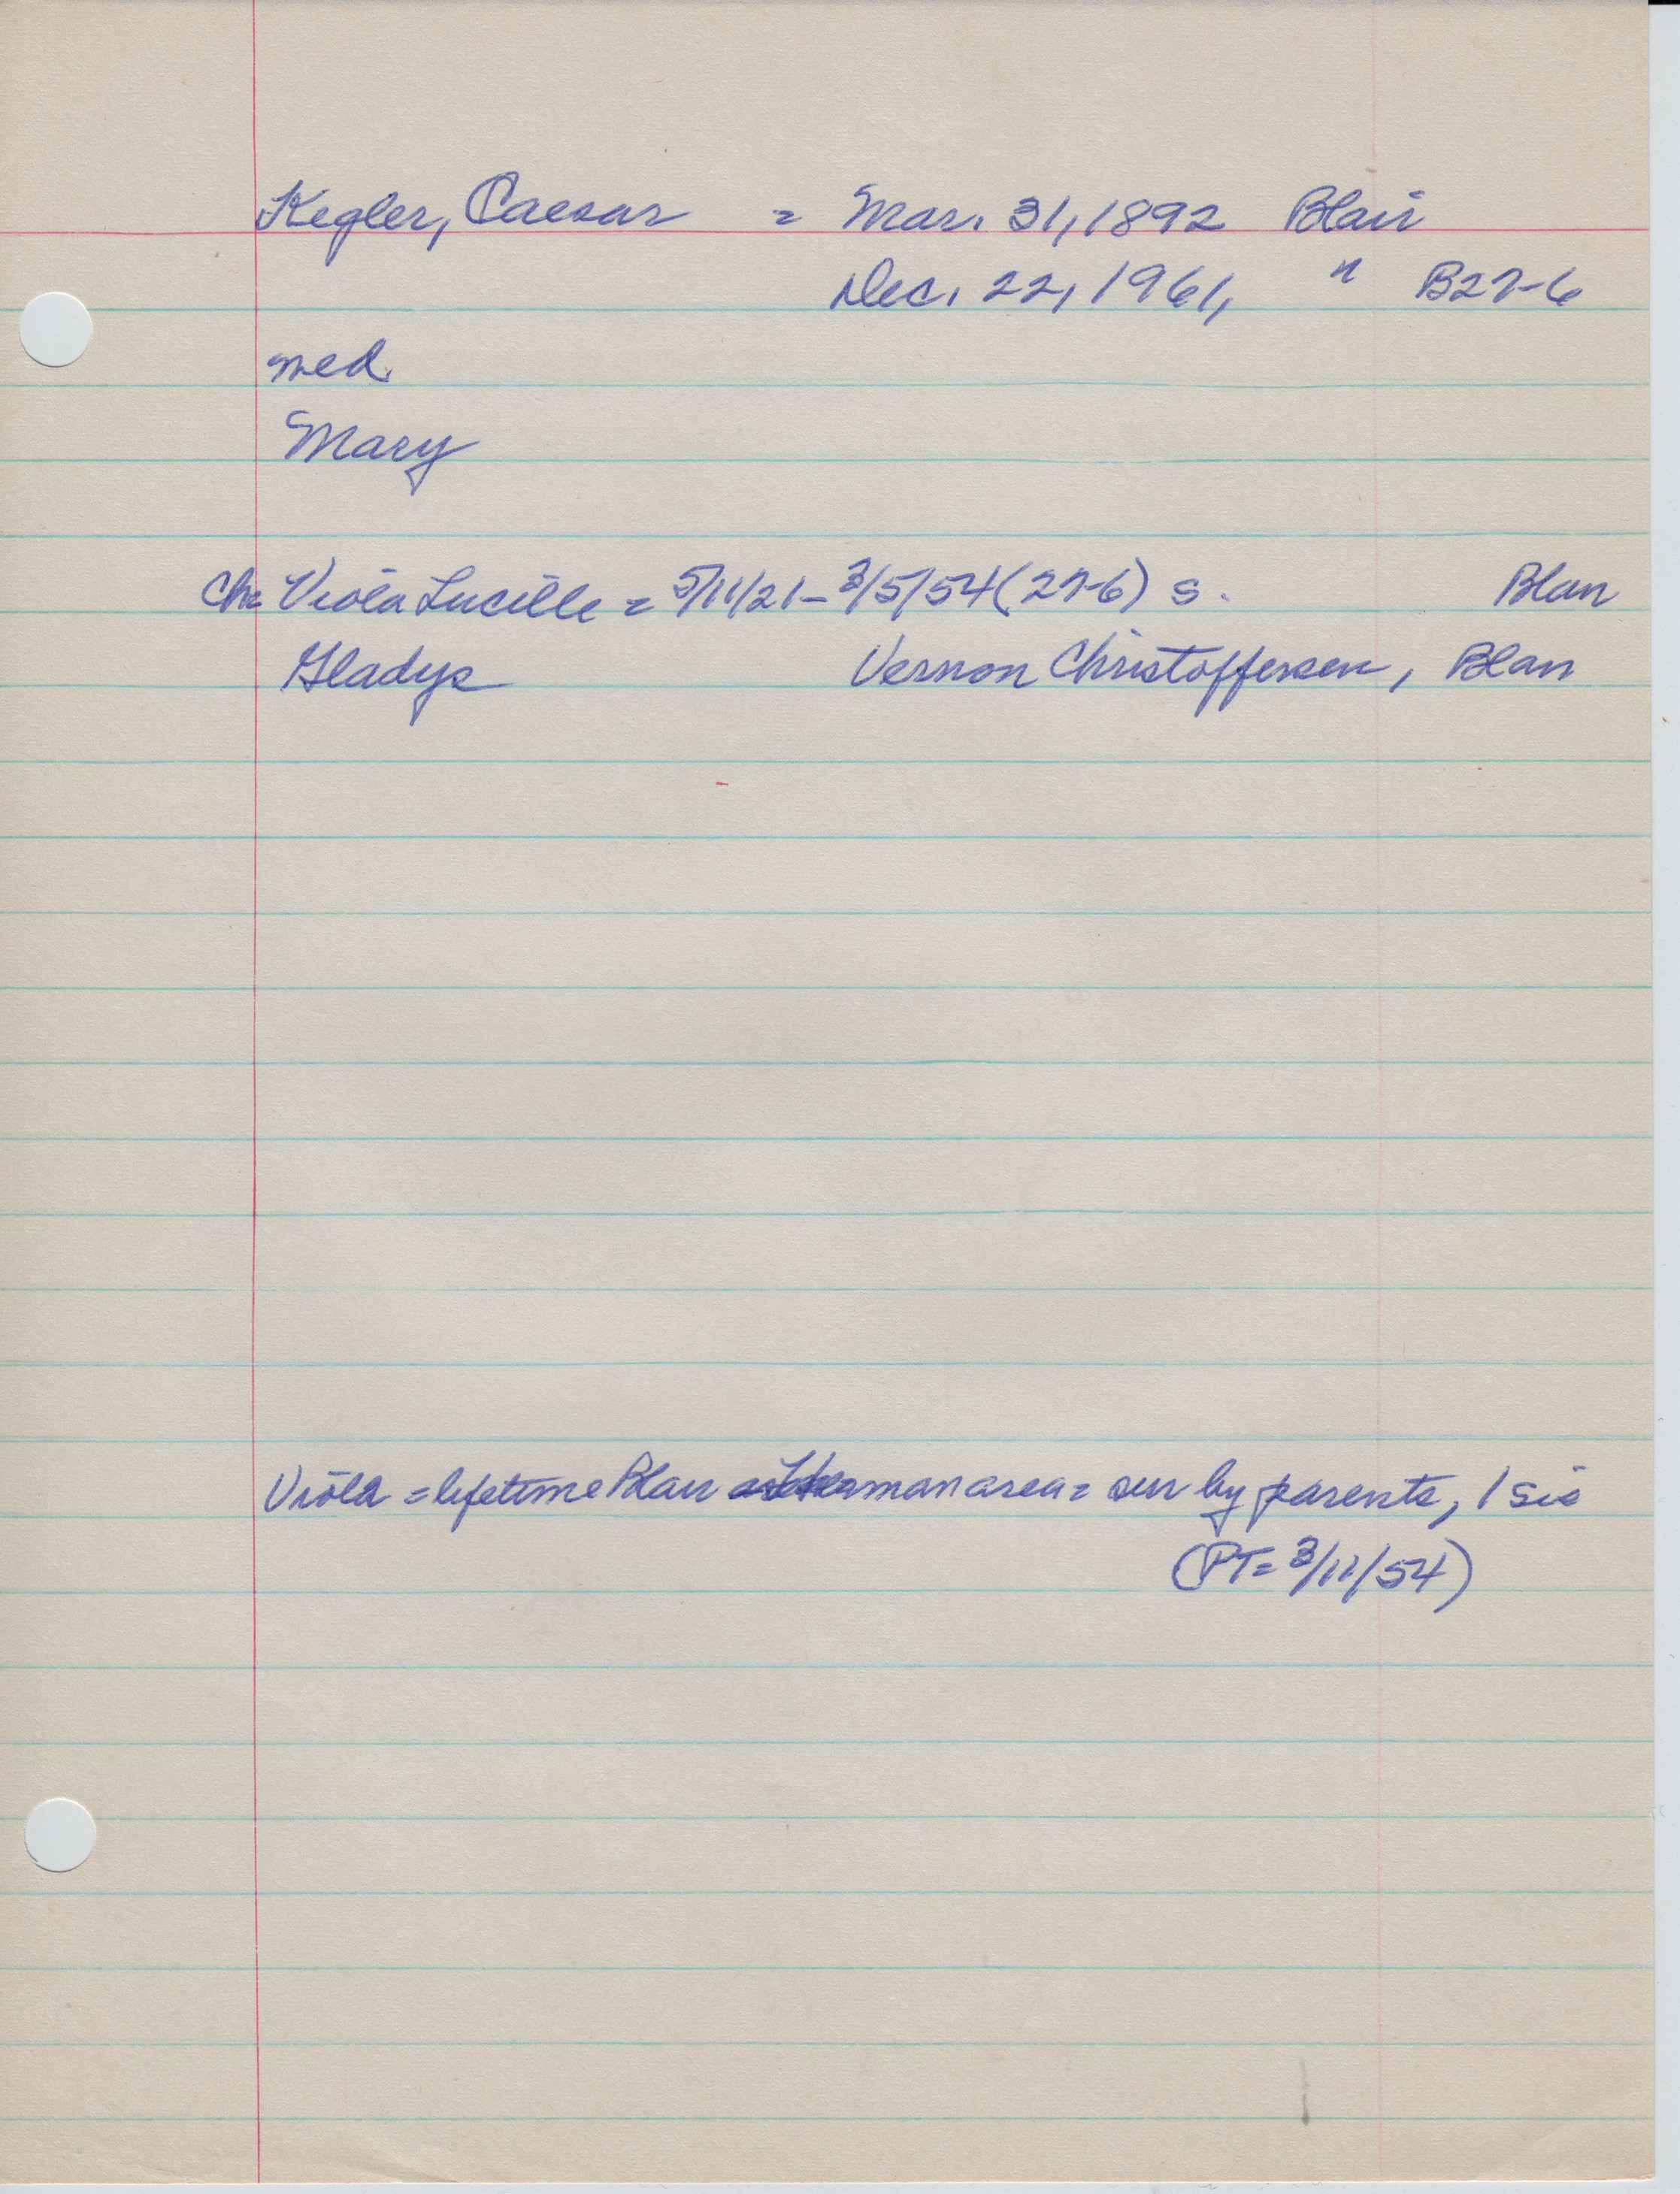 Kegler, Caesar = Mar. 31, 1892 Blair
Dec. 22, 1961, " B27-6
med
Mary
Ch= Viola Lucille = 5/11/21 - 3/5/54 (27-6) S. Blair
Gladys Vernon Christoffersen, Blair
Viola = lifetime Blair Herman area = sur by parents, 1 sis
(PT= 3/11/54)